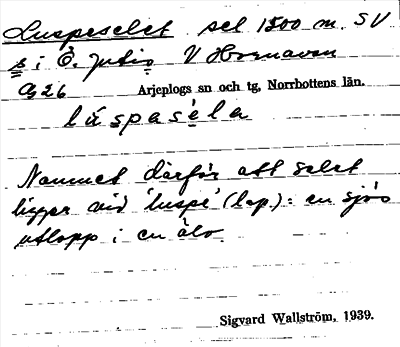 Luspeselet sel 1500 m. SV
s i Ö. Jutis V Hornavan
Cg 26 Arjeplogs sn och tg, Norrbottens län.
lúspasèla
Namnet därför att selet
ligger vid 'luspe' (lap.): en sjös
utlopp i en älv.
Sigvard Wallström, 1939.